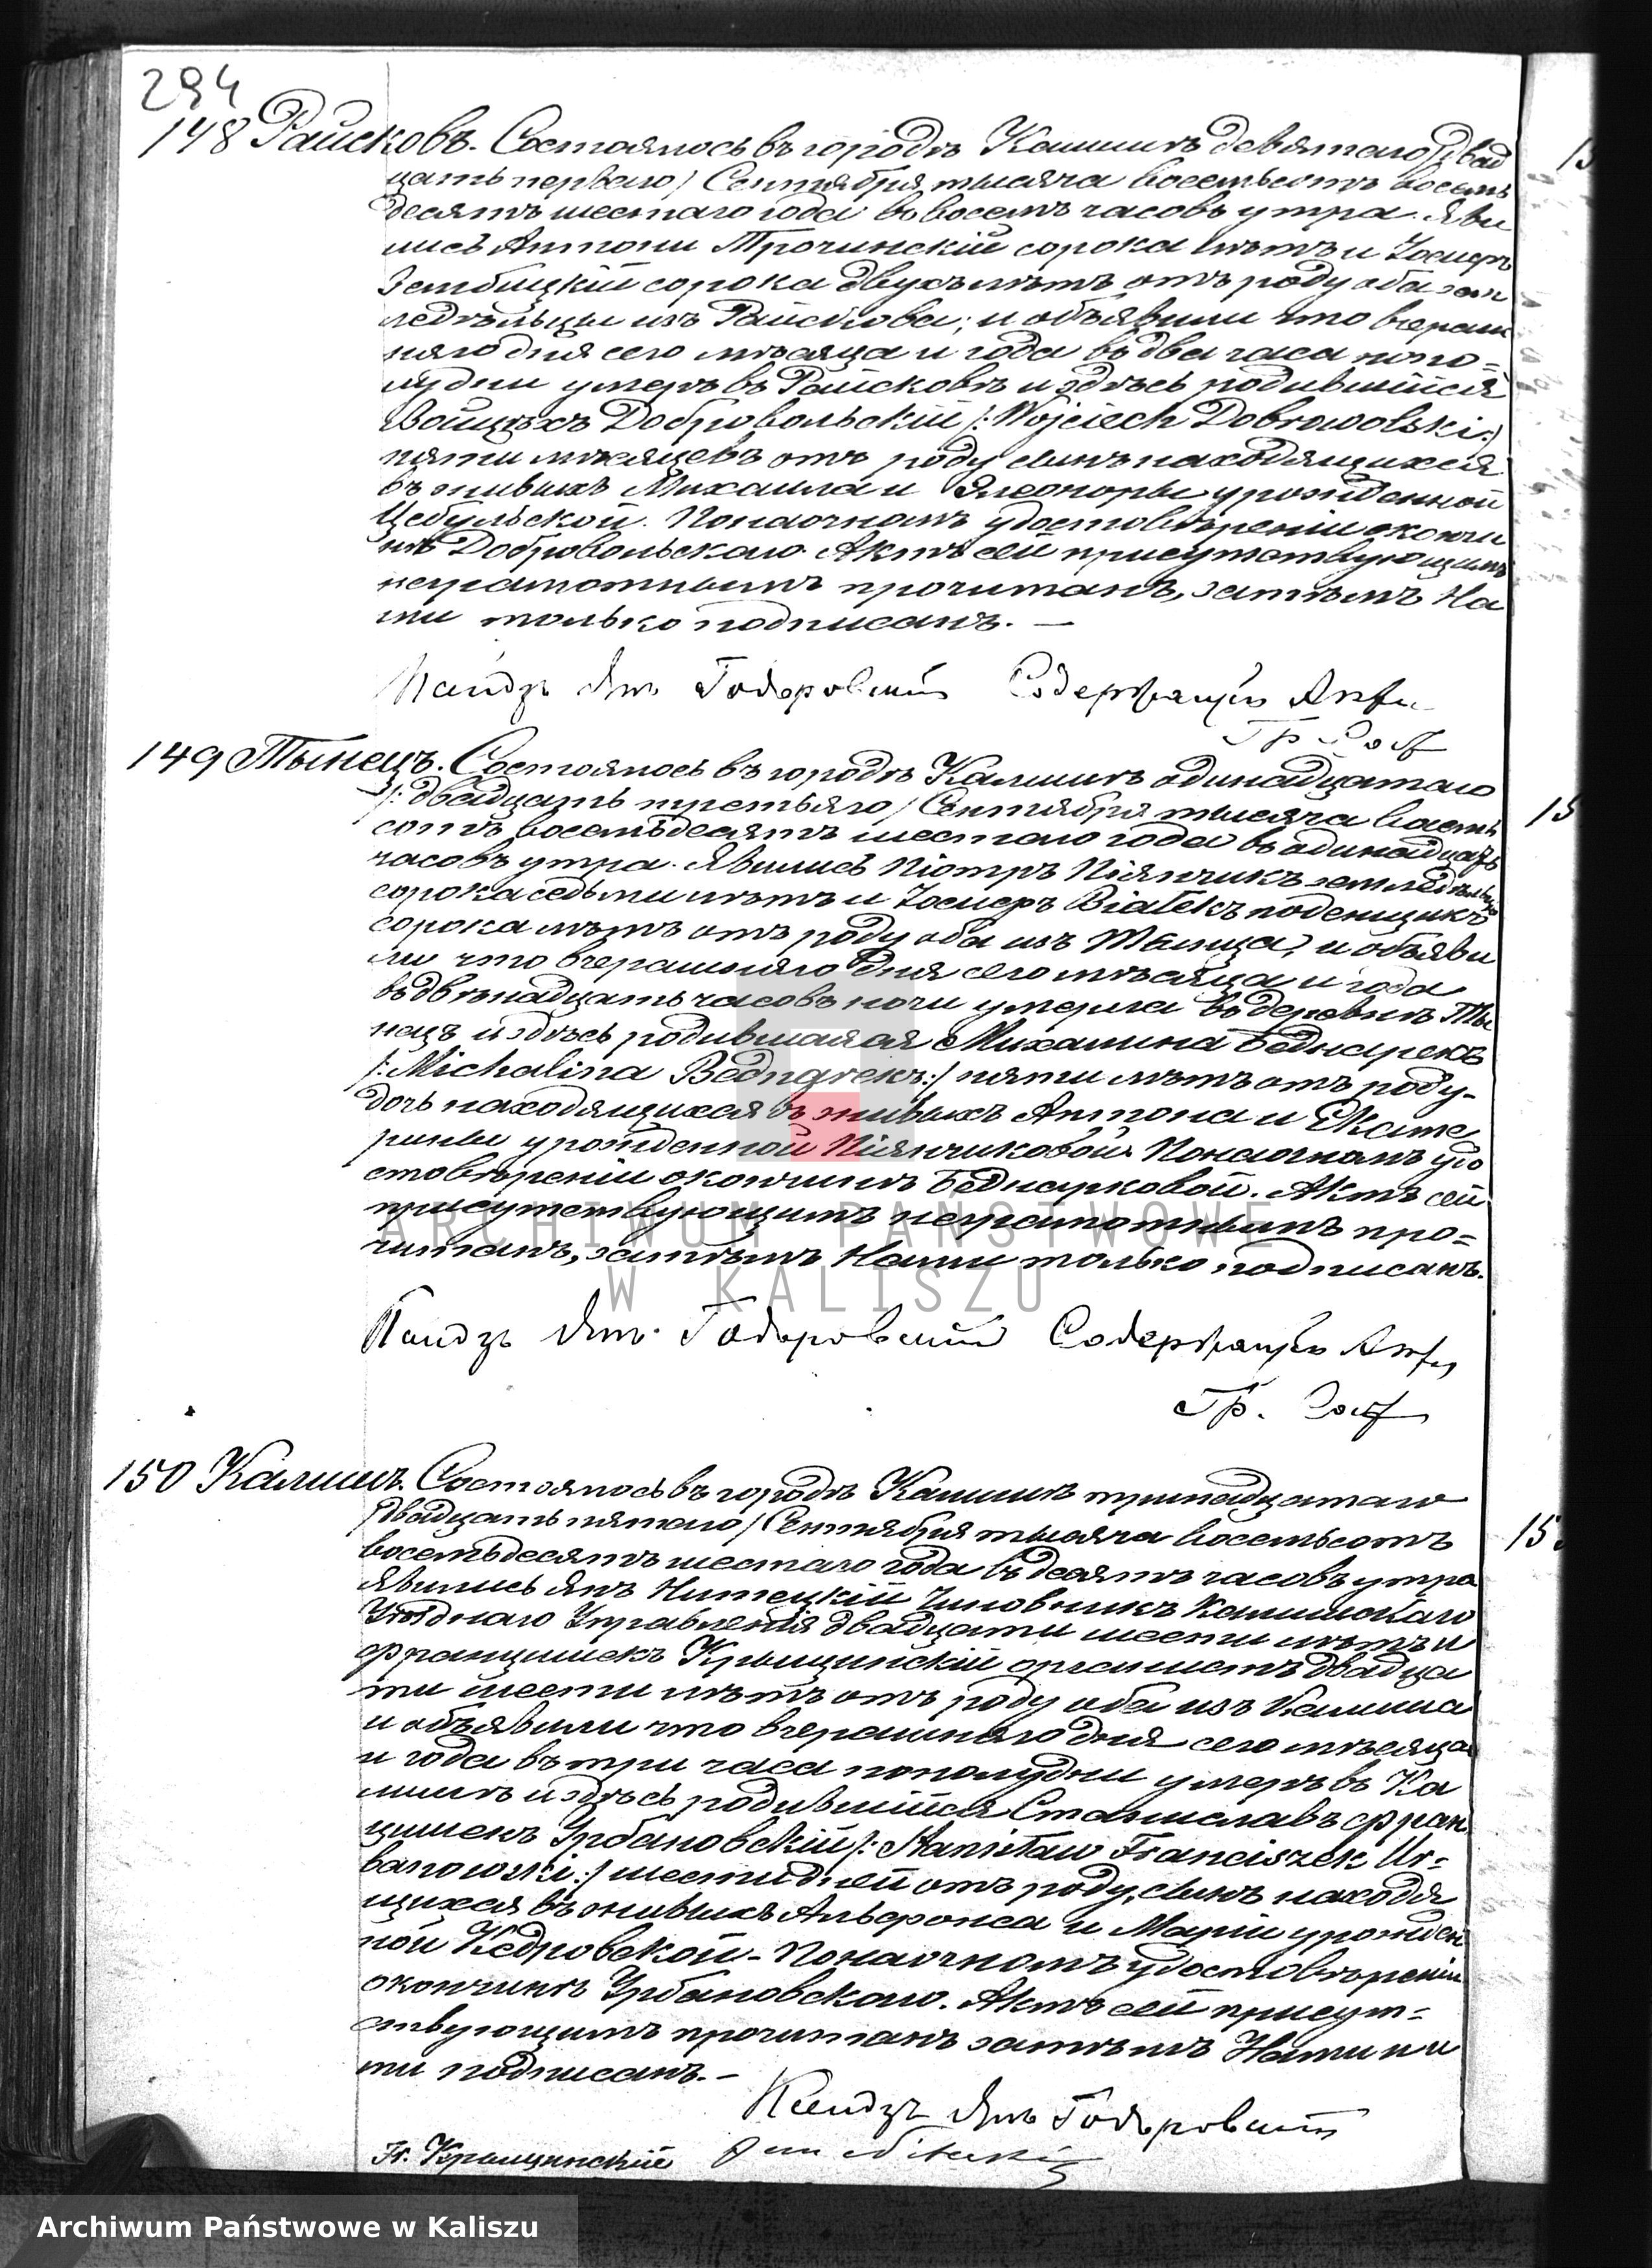 294
148 Райсковъ. Состоялось въ городѣ Калишѣ девятаго /двад
цать перваго/ Сентября тысяча восемьсотъ восемь
десятъ шестаго года въ восемь часовъ утра. Яви
лись Антони Трочинскій сорока лѣтъ и Іосифъ
Зембицкій сорока двухъ лѣтъ отъ роду оба зем
ледѣльцы изъ Райскова; и объявили что вчераш
няго дня сего мѣсяца и года въ два часа попо=
лудни умеръ въ Райсковѣ и здѣсь родившійся
Войцѣхъ Добровольскій /:Wojciech Dobrowolski:/
пяти мѣсяцевъ отъ роду сынъ находящихся
въ живыхъ Михаила и Элеоноры урожденной
Цебульской. По наочномъ удостовѣреніи о кончи
нѣ Добровольскаго Актъ сей присутствующимъ
неграмотнымъ прочитанъ, затѣмъ На
ми только подписанъ. —
Ксендзъ Янъ Годоровскій Содержащій Акты
Гр. Сост
149 Тынецъ. Состоялось въ городѣ Калишѣ одинадцатаго
/:двадцать третьяго/ Сентября тысяча восемь
сотъ восемьдесятъ шестаго года въ одинадцать
часовъ утра. Явились Піотръ Піянчикъ земледѣлецъ
сорока седьми лѣтъ и Іосифъ Białekъ поденщикъ
сорока лѣтъ отъ роду оба изъ Тынца, и объяви
ли что вчерашняго дня сего мѣсяца и года
въ двѣнадцать часовъ ночи умерла въ деревнѣ Ты
нецъ и здѣсь родившаяся Михалина Беднарекъ
/:Michalina Bednarekъ:/ пяти лѣтъ отъ роду-
дочь находящихся въ живыхъ Антона и Екате
рины урожденной Піянчиковой. По наочномъ удо
стовѣреніи о кончинѣ Беднарковой. Актъ сей
присутствующимъ неграмотнымъ про=
читанъ, затѣмъ Нами только подписанъ.
ARCHIWUM PAŃSTWOWE
W KALISZU
Ксендзъ Янъ Годоровскій Содержащій Акты
Гр. Сост
150 Калишъ. Состоялось въ городѣ Калишѣ тринадцатаго
/двадцать пятаго/ Сентября тысяча восемьсотъ
восемьдесятъ шестаго года въ десять часовъ утра
Явились Янъ Нитецкій Чиновникъ Калишскаго
Уѣзднаго Управленія двадцати шести лѣтъ и
Францишекъ Крыщинскій органистъ двадца
ти шести лѣтъ отъ роду оба изъ Калиша
и объявили что вчерашняго дня сего мѣсяца
и года въ три часа пополудни умеръ въ Ка
лишѣ и здѣсь родившійся Станиславъ Фран
цишекъ Урбановскій /:Stanisław Franciszek Ur=
banowski:/ шести дней отъ роду, сынъ находя
щихся въ живыхъ Альфонса и Маріи урожден
ной Кедровской- По наочномъ удостовѣреніи
о кончинѣ Урбановскаго. Актъ сей присут=
ствующимъ прочитанъ затѣмъ Нами и и
ми подписанъ.-
Ксендзъ Янъ Годоровскій
Fr. Крыщинскій
Archiwum Państwowe w Kaliszu